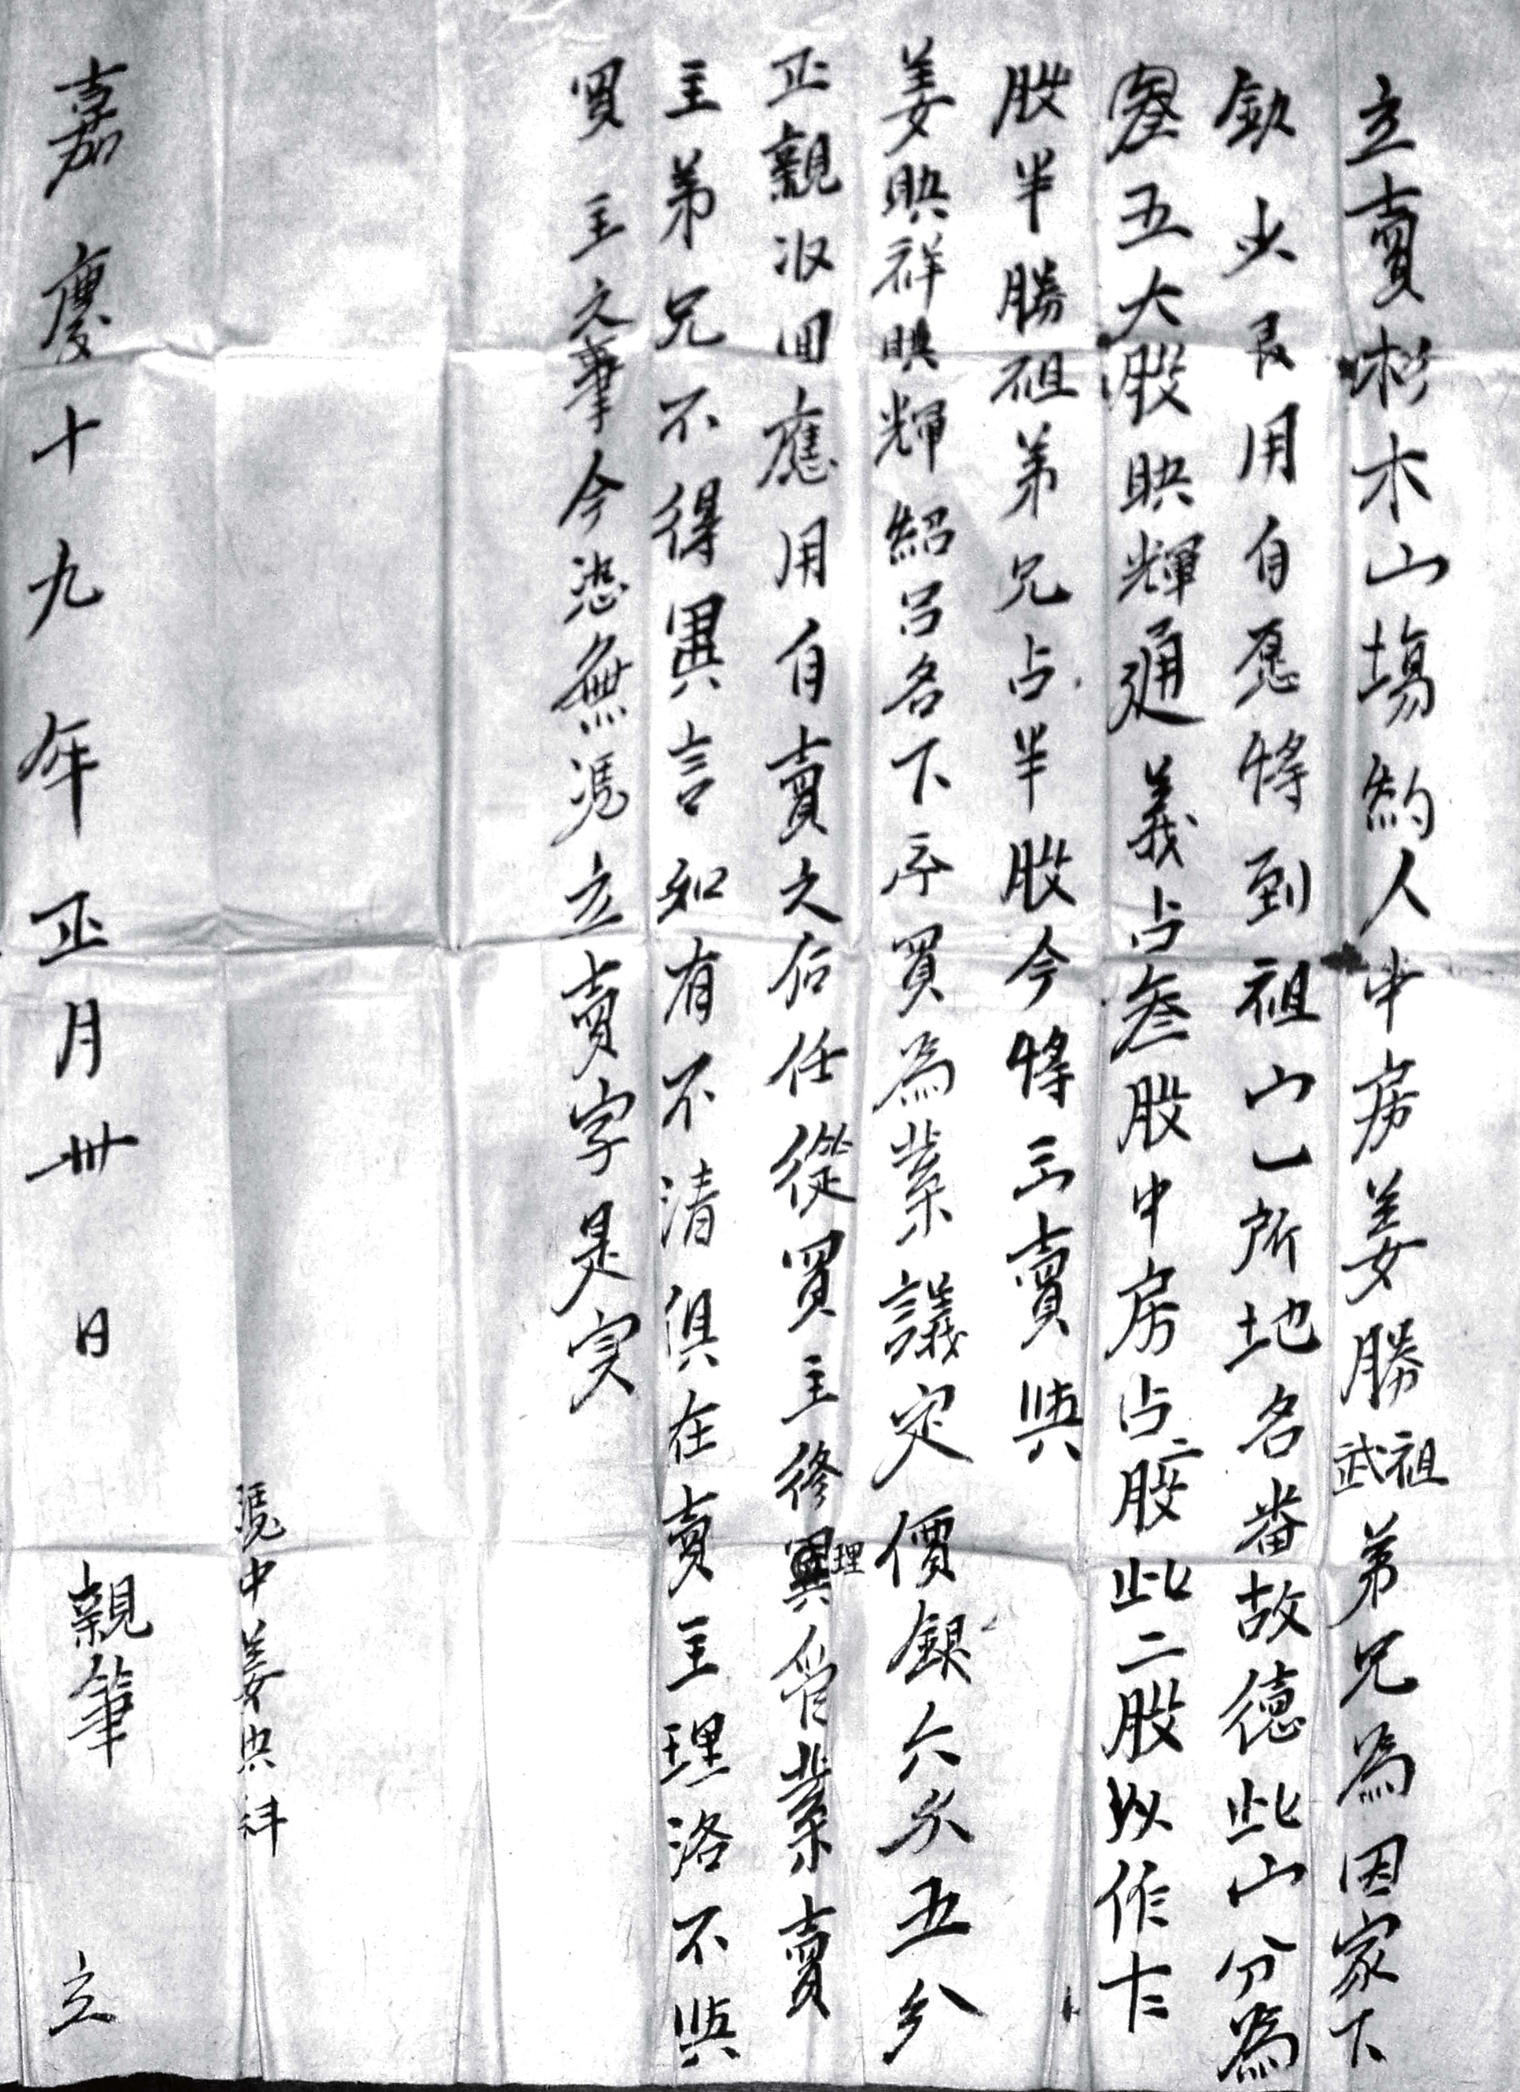 立賣杉木山塲約人中房姜勝祖武弟兄為因家下
缺少艮用自愿将到祖山一所地名番故德此山分為
五大股映輝通義占叁股中房占二股此二股以作
股半勝祖弟兄占半股今将三賣與
姜映祥映輝紹吕名下承買為業議定價銀六分五分
正親收回應用自賣之后任從買主修理管業賣
主弟兄不得異言如有不清俱在賣主理洛不與
買主之事今恐無憑立賣字是实
憑中姜典科
嘉慶十九年正月卅日 親筆 立